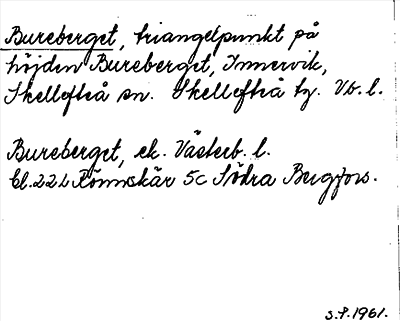 Bureberget, triangelpunkt på
höjden Bureberget, Innervik,
Skellefteå sn. Skellefteå tg. Vb. l.
Bureberget, ek. Västerb. l.
Bl. 22 L Rönnskär 5c Södra Bergfors.
S.P. 1961.